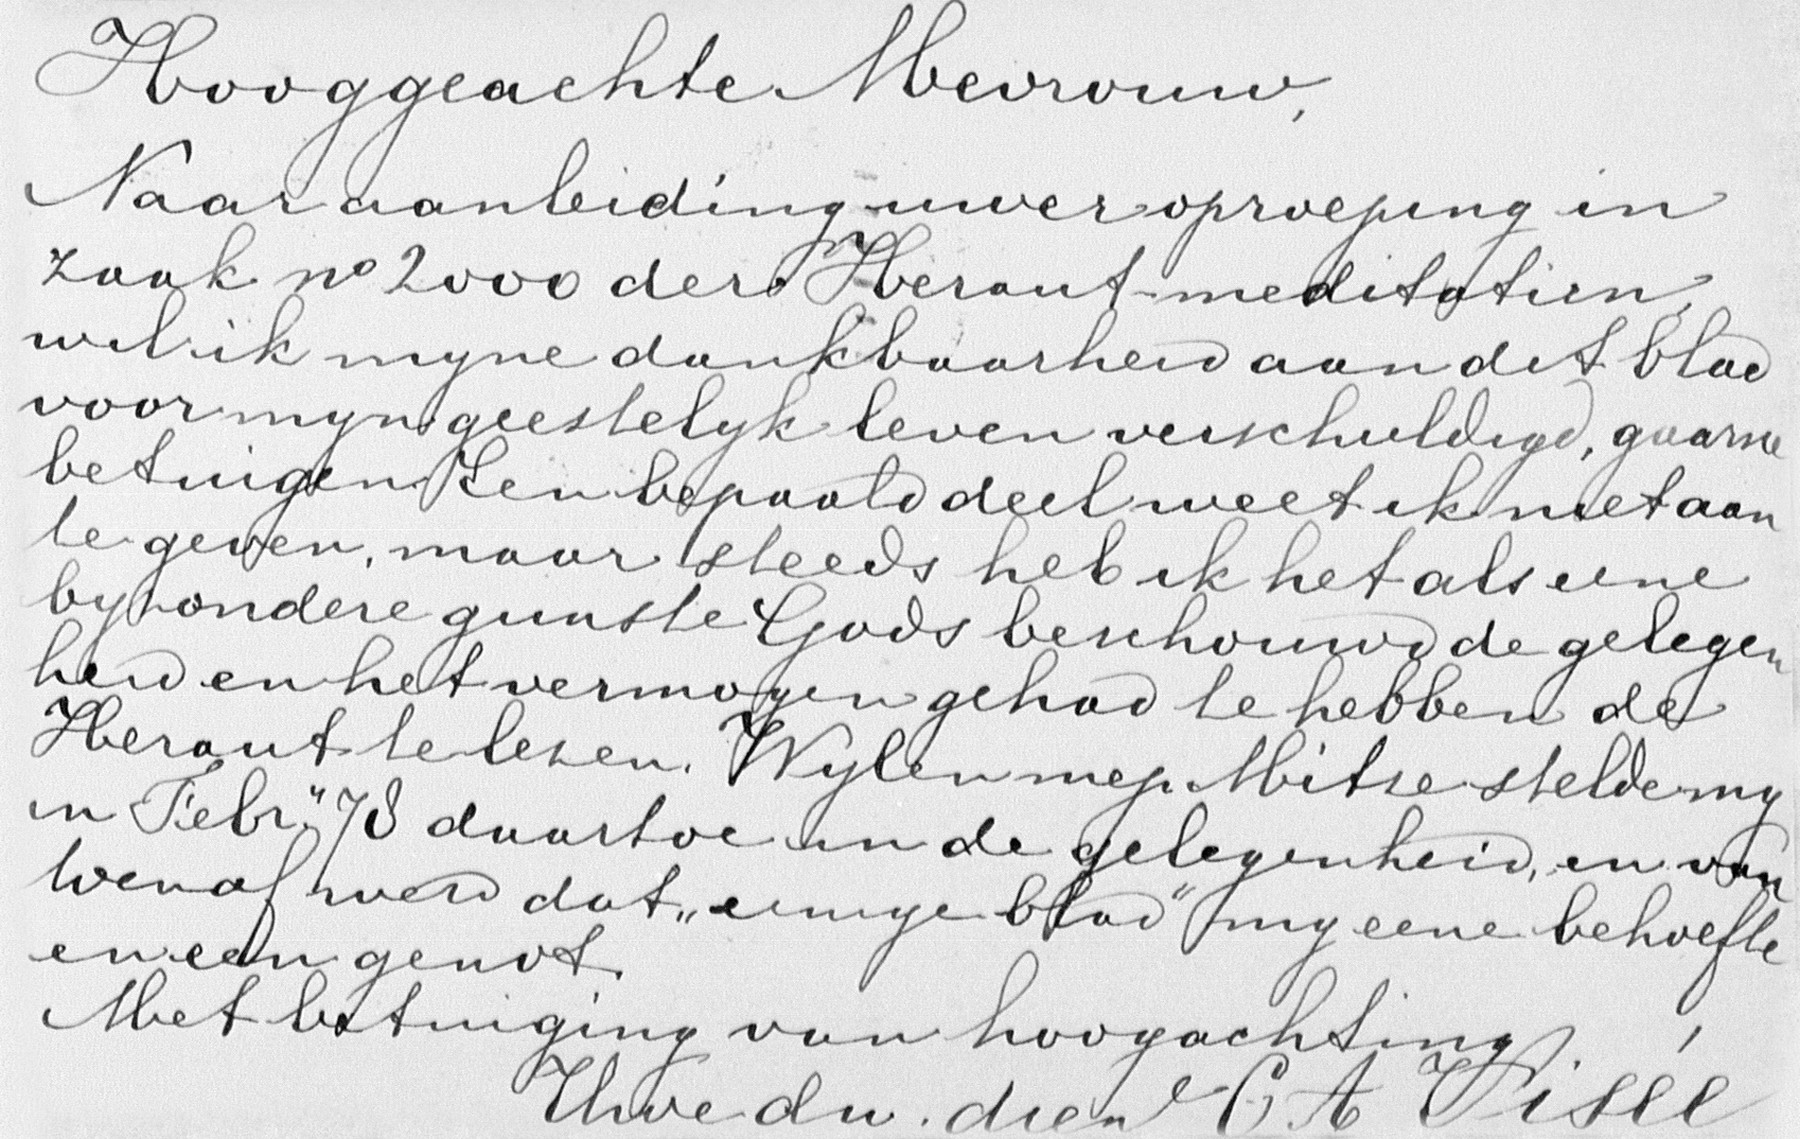 Hooggeachte Mevrouw,
Naar aanleiding uwer oproeping in
zaak no 2000 der Heraut-meditatien,
wil ik myne dankbaarheid aan dit blad
voor myn geestelyk leven verschuldigd, gaarne
betuigen. Een bepaald deel weet ik niet aan
te geven, maar steeds heb ik het als eene
byzondere gunste Gods beschouwd de gelegen
heid en het vermogen gehad te hebben de
Heraut te lezen. Wylen mej. Mitse stelde my
in Febr. "78 daartoe in de gelegenheid, en van
toen af werd dat „eenige blad" my eene behoefte
en een genot.
Met betuiging van hoogachting,
Uwe dw. dien A Visée